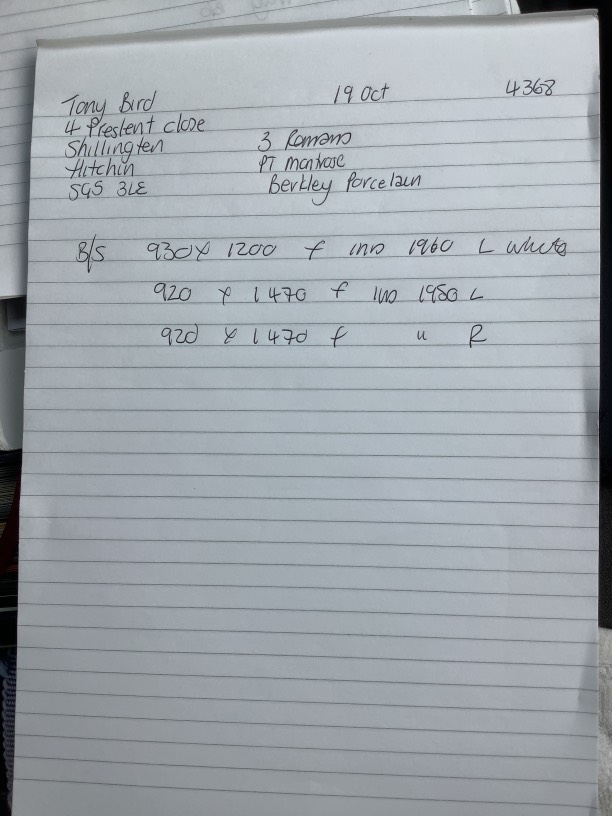 Tony Bird 19 Oct 4368
4 Preslent close
Shillington 3 Romans
Hitchin PT montrose
SG5 3LE Berkley Porcelain
B/S 930 x 1200 f ins 1960 L white
920 x 1470 f ins 1950 L
920 x 1470 f " R